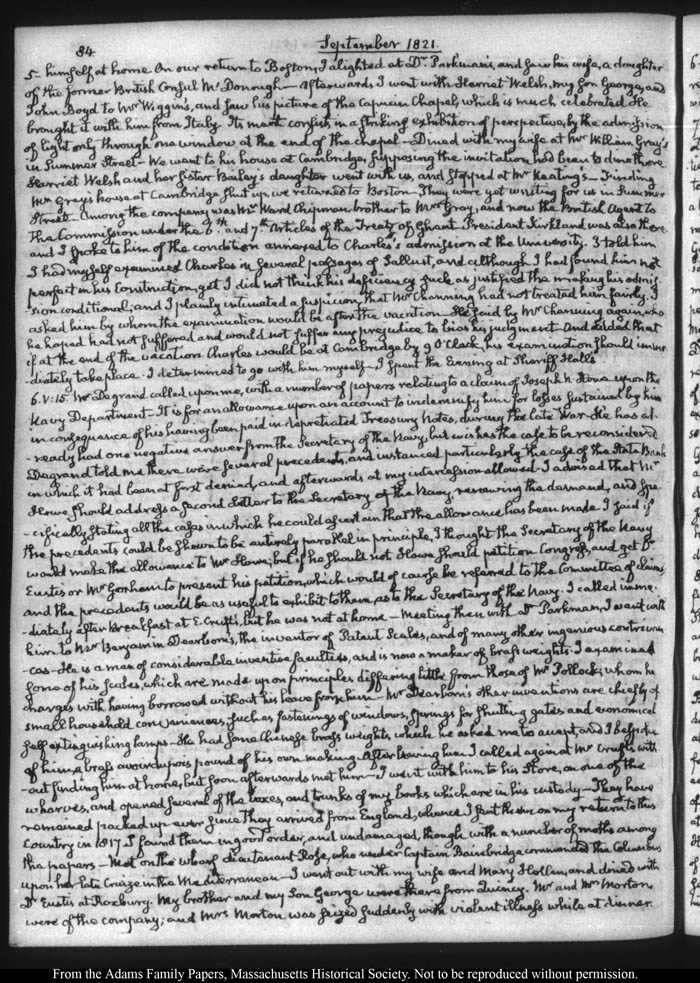 84
September 1821.
5– himself at home. On our return to Boston, I alighted at Dr. Parkman's, and saw his wife, a daughter
of the former British Consul Mr Donough — Afterwards I went with Harriet Welsh, my Son George, and
John Boyd to Mr Wiggin's, and saw his picture of the Capucin Chapel, which is much celebrated. He
brought it with him from Italy. Its merit consists, in a striking exhibition of perspective, by the admission
of light only through one window at the end of the chapel — Dined with my wife at Mr William Gray's
in Summer Street — We went to his house at Cambridge, supposing the invitation had been to dine there.
Harriet Welsh and her Sister Bailey's daughter went with us, and stopped at Mr Keating's — Finding
Mr Gray's house at Cambridge shut up, we returned to Boston — They were yet waiting for us in Summer
Street. Among the company was Mr Ward Chipman brother to Mrs Gray, and now the British Agent to
the Commission under the 6th. and 7th. Articles of the Treaty of Ghent. President Kirkland was also there
and I spoke to him of the condition annexed to Charles's admission at the University. I told him
I had myself examined Charles in several passages of Sallust, and although I had found him not
perfect in his construction, yet I did not think his deficiency such as justified the making his admis-
-sion conditional; and I plainly intimated a suspicion, that Mr Channing had not treated him fairly. I
asked him by whom the examination would be after the vacation — He said by Mr Channing again, who
he hoped had not suffered and would not suffer any prejudice to bias his judgment. And added that
if at the end of the vacation Charles would be at Cambridge by 9 O'Clock, his examination should imme-
diately take place. I determined to go with him myself — I spent the Evening at Sheriff Hall's
6. V:15. Mr Degrand called upon me, with a number of papers relating to a claim of Joseph N. Howe upon the
Navy Department — It is for an allowance upon an account to indemnify him for losses sustained by him
in consequence of his having been paid in depretiated Treasury Notes, during the late War. He has al-
-ready had one negative answer from the Secretary of the Navy, but wishes the case to be reconsidered
Degrand told me there were several precedents, and instanced particularly the case of the State Bank
in which it had been at first denied, and afterwards at my intercession allowed. I advised that Mr
Howe should address a second Letter to the Secretary of the Navy, renewing the demand, and spe-
-cifically stating all the cases in which he could ascertain that the allowance has been made. I said if
the precedents could be shewn to be entirely parallel in principle, I thought the Secretary of the Navy
would make the allowance to Mr Howe, but if he should not Howe should petition Congress, and get Dr.
Eustis or Mr Gorham to present his petition, which would of course be referred to the Committee of Claims
and the precedents would be as useful to exhibit to them, as to the Secretary of the Navy. I called imme-
-diately after breakfast at E. Cruft's, but he was not at home — Meeting then with Dr Parkman, I went with
him to Mr Benjamin Dearborn's, the inventor of Patent Scales, and of many other ingenious contrivan
-ces — He is a man of considerable inventive faculties, and is now a maker of brass weights. I examined
some of his scales, which are made upon principles differing little from those of Mr Pollock; whom he
charges with having borrowed without his leave from him. Mr Dearborn's other inventions are chiefly of
small household conveniences, such as fastenings of windows, springs for shutting gates and economical
self extinguishing lamps. He had some Chinese brass weights, which he asked me to accept, and I bespoke
of him a brass avoirdupois pound of his own making. After leaving him I called again at Mr Cruft's with
-out finding him at home, but soon afterwards met him — I went with him to his Store, on one of the
wharves, and opened several of the boxes, and trunks of my books which are in his custody — They have
remained packed up ever since they arrived from England, whence I sent them on my return to this
Country in 1817. I found them in good order, and undamaged, though with a number of moths among
the papers — Met on the wharf Lieutenant Rose, who under Captain Bainbridge commanded the Columbus
upon her late Cruize in the Mediterranean — I went out with my wife and Mary Hellen, and dined with
Dr Eustis at Roxbury. My brother and my Son George were there from Quincy. Mr and Mrs Morton,
were of the company; and Mrs Morton was seized suddenly with violent illness while at dinner.
From the Adams Family Papers, Massachusetts Historical Society. Not to be reproduced without permission.